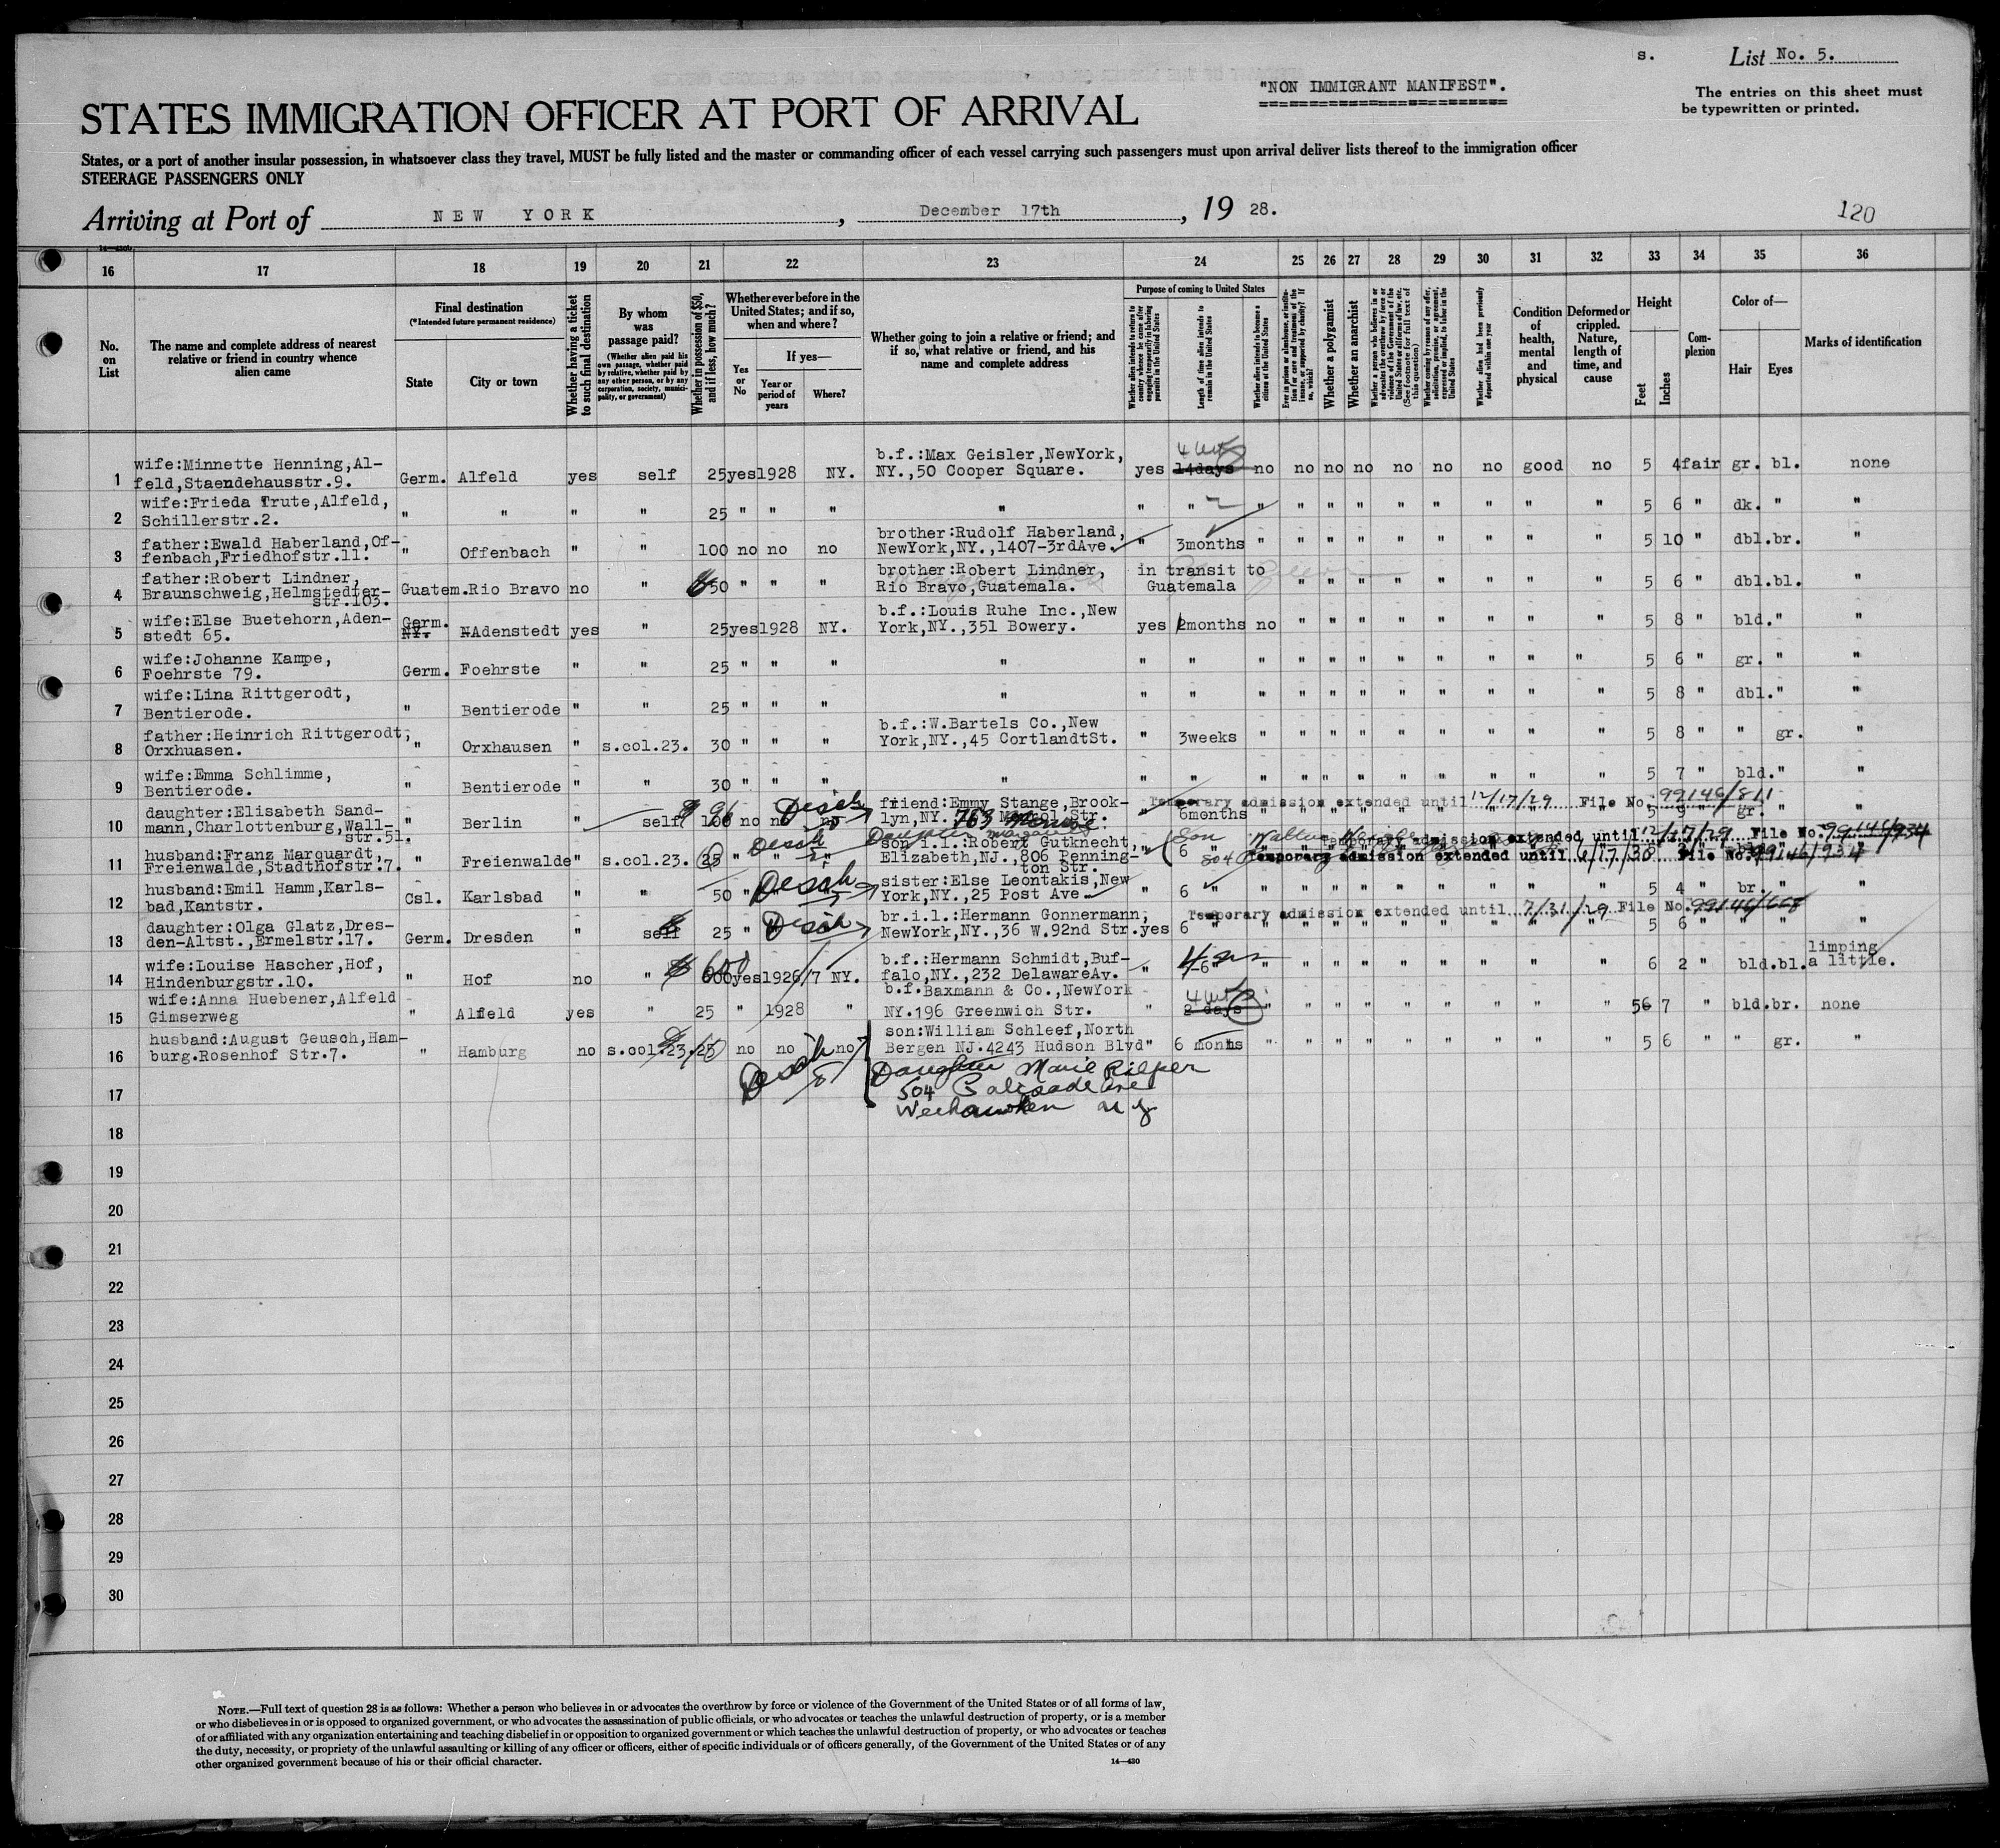 s. List No. 5.
"NON IMMIGRANT MANIFEST".
The entries on this sheet must
be typewritten or printed.
STATES IMMIGRATION OFFICER AT PORT OF ARRIVAL
States, or a port of another insular possession, in whatsoever class they travel, MUST be fully listed and the master or commanding officer of each vessel carrying such passengers must upon arrival deliver lists thereof to the immigration officer
STEERAGE PASSENGERS ONLY
Arriving at Port of NEW YORK, December 17th, 19 28.
120
16 17 18 19 20 21 22 23 24 25 26 27 28 29 30 31 32 33 34 35 36
No. on List
The name and complete address of nearest relative or friend in country whence alien came
Final destination
(*Intended future permanent residence)
State
City or town
Whether having a ticket to such final destination
By whom was passage paid?
(Whether alien paid his own passage, whether paid by relative, whether paid by any other person, or by any corporation, society, municipality, or government)
Whether in possession of $50, and if less, how much?
Whether ever before in the United States; and if so, when and where?
Yes or No
If yes—
Year or period of years
Where?
Whether going to join a relative or friend; and if so, what relative or friend, and his name and complete address
Purpose of coming to United States
Length of time alien intends to remain in the United States
Whether alien intends to become a citizen of the United States
Whether a polygamist
Whether an anarchist
(See footnote for full text of this question)
Whether alien had been previously deported within one year
Condition of health, mental and physical
Deformed or crippled. Nature, length of time, and cause
Height
Feet
Inches
Complexion
Color of—
Hair
Eyes
Marks of identification
1 wife:Minnette Henning,Al-
feld,Staendehausstr.9. Germ. Alfeld yes self 25 yes 1928 NY. b.f.:Max Geisler,NewYork,
NY.,50 Cooper Square. yes 14days no no no no no no no good no 5 4 fair gr. bl. none
2 wife:Frieda Trute,Alfeld,
Schillerstr.2. " " " " 25 " " " " " " " " " " " " " " " " 5 6 " dk. " "
3 father:Ewald Haberland,Of-
fenbach,Friedhofstr.11. " Offenbach " " 100 no no no brother:Rudolf Haberland,
NewYork,NY.,1407-3rdAve. " 3months " " " " " " " " " 5 10 " dbl.br. "
4 father:Robert Lindner,
Braunschweig,Helmstedter-
str.103. Guatem. Rio Bravo no " 50 " " " brother:Robert Lindner,
Rio Bravo,Guatemala. in transit to
Guatemala " " " " " " " " 5 6 " dbl.bl. "
5 wife:Else Buetehorn,Aden-
stedt 65. Germ. Adenstedt yes " 25 yes 1928 NY. b.f.:Louis Ruhe Inc.,New
York,NY.,351 Bowery. yes 2months no " " " " " " " " 5 8 " bld. " "
6 wife:Johanne Kampe,
Foehrste 79. Germ. Foehrste " " 25 " " " " " " " " " " " " " " " 5 6 " gr. " "
7 wife:Lina Rittgerodt,
Bentierode. " Bentierode " " 25 " " " " " " " " " " " " " " " 5 8 " dbl. " "
8 father:Heinrich Rittgerodt,
Orxhuasen. " Orxhausen " s.col.23. 30 " " " b.f.:W.Bartels Co.,New
York,NY.,45 CortlandtSt. " 3weeks " " " " " " " " " 5 8 " " gr. "
9 wife:Emma Schlimme,
Bentierode. " Bentierode " " 30 " " " " " " " " " " " " " " " 5 7 " bld. " "
Temporary admission extended until 12/17/29 File No. 99146/811
10 daughter:Elisabeth Sand-
mann,Charlottenburg,Wall-
str.51. " Berlin " self 100 no no no friend:Emmy Stange,Brook-
lyn,NY. 763 Str. " 6months " " " " " " " " " 5 gr. " "
Temporary admission extended until 12/17/29 File No. 99146/934
Temporary admission extended until 6/17/30 File No. 99146/934
11 husband:Franz Marquardt,
Freienwalde,Stadthofstr.7. " Freienwalde " s.col.23. 25 " " " son i.l.:Robert Gutknecht,
Elizabeth,NJ.,806 Penning-
ton Str. " 6 "
12 husband:Emil Hamm,Karls-
bad,Kantstr. Csl. Karlsbad " " 50 " " " sister:Else Leontakis,New
York,NY.,25 Post Ave. " 6 " " " " " " " " " " 5 4 " br. " "
Temporary admission extended until 7/31/29 File No. 99146/668
13 daughter:Olga Glatz,Dres-
den-Altst.,Ermelstr.17. Germ. Dresden " self 25 " br.i.l.:Hermann Gonnermann,
NewYork,NY.,36 W.92nd Str. yes 6 " " " " " " " " " " 5 6 " " " "
14 wife:Louise Hascher,Hof,
Hindenburgstr.10. " Hof no " 600 yes 1926/7 NY. b.f.:Hermann Schmidt,Buf-
falo,NY.,232 DelawareAv. " " " " " " " " " " " 6 2 " bld.bl. limping
a little.
15 wife:Anna Huebener,Alfeld
Gimserweg " Alfeld yes " 25 " 1928 " b.f.Baxmann & Co.,NewYork
NY.196 Greenwich Str. " 2 days " " " " " " " " " 5 7 " bld.br. none
16 husband:August Geusch,Ham-
burg.Rosenhof Str.7. " Hamburg no s.col.23. 25 no no no son:William Schleef,North
Bergen NJ.4243 Hudson Blvd " 6 months " " " " " " " " " 5 6 " " gr. "
Daughter Marie
504 Palisade Ave
Weehawken N J
17
18
19
20
21
22
23
24
25
26
27
28
29
30
NOTE.—Full text of question 28 is as follows: Whether a person who believes in or advocates the overthrow by force or violence of the Government of the United States or of all forms of law,
or who disbelieves in or is opposed to organized government, or who advocates the assassination of public officials, or who advocates or teaches the unlawful destruction of property, or is a member
of or affiliated with any organization entertaining and teaching disbelief in or opposition to organized government or which teaches the unlawful destruction of property, or who advocates or teaches
the duty, necessity, or propriety of the unlawful assaulting or killing of any officer or officers, either of specific individuals or of officers generally, of the Government of the United States or of any
other organized government because of his or their official character.
14—430